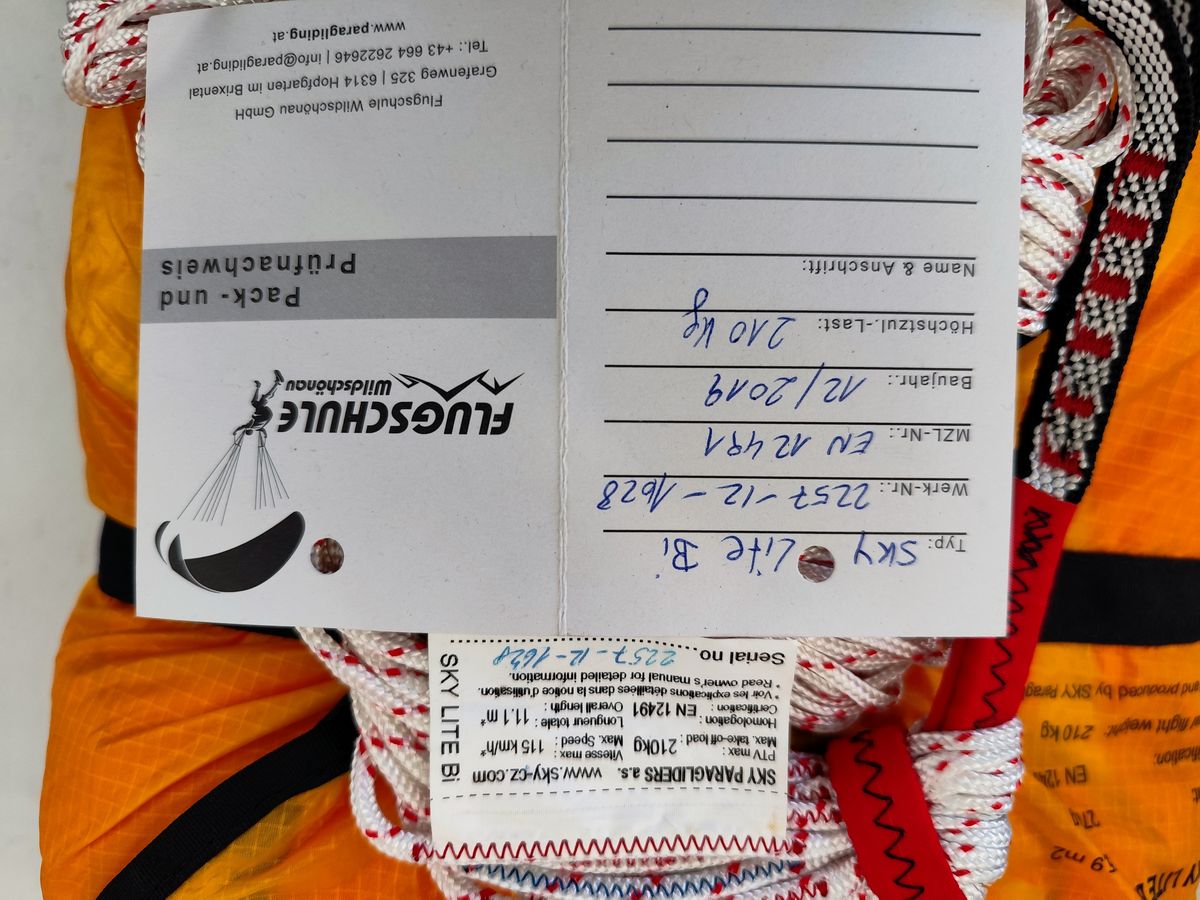 FLUGSCHULE
Wildschönau
Pack- und
Prüfnachweis
Flugschule Wildschönau GmbH
Grafenweg 325 | 6314 Hopfgarten im Brixental
Tel.: +43 664 2622646 | info@paragliding.at
www.paragliding.at
Typ: SKY Lite Bi
Werk-Nr.: 2257-12-1628
MZL-Nr.: EN 12491
Baujahr.: 12/2019
Höchstzul.-Last: 210 kg
Name & Anschrift:
SKY PARAGLIDERS a.s. www.sky-cz.com
PTV max :
Max. take-off load : 210kg
Vitesse max :
Max. Speed : 115 km/h*
Homologation :
Certification : EN 12491
Longueur totale :
Overall length : 11.1 m*
* Voir les explications détaillées dans la notice d'utilisation.
* Read owner's manual for detailed information.
Serial no 2257-12-1628
SKY LITE Bi
EN
210 kg
and produced by SKY
flight weight: